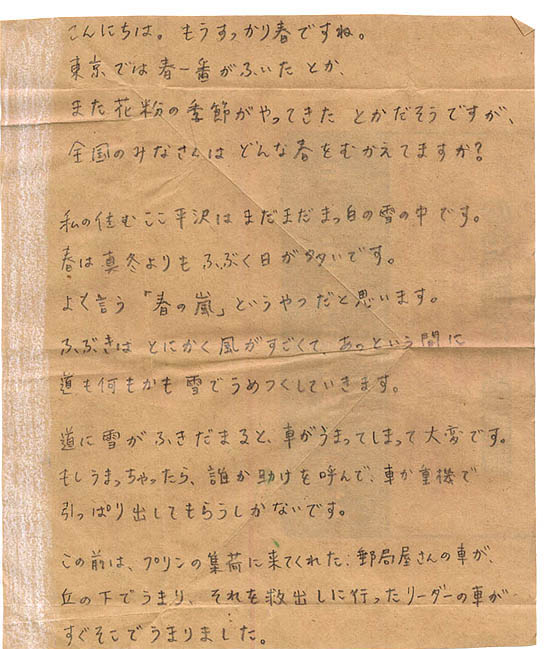 こんにちは。もうすっかり春ですね。
東京では春一番がふいたとか、
また花粉の季節がやってきたとかだそうですが、
全国のみなさんはどんな春をむかえてますか？
私の住むここ平沢はまだまだまっ白の雪の中です。
春は真冬よりもふぶく日が多いです。
よく言う「春の嵐」というやつだと思います。
ふぶきはとにかく風がすごくて、あっという間に
道も何もかも雪でうめつくしていきます。
道に雪がふきだまると、車がうまってしまって大変です。
もしうまっちゃったら、誰か助けを呼んで、車か重機で
引っぱり出してもらうしかないです。
この前は、プリンの集荷に来てくれた、郵局屋さんの車が、
丘の下でうまり、それを救出しに行ったリーダーの車が
すぐそこでうまりました。